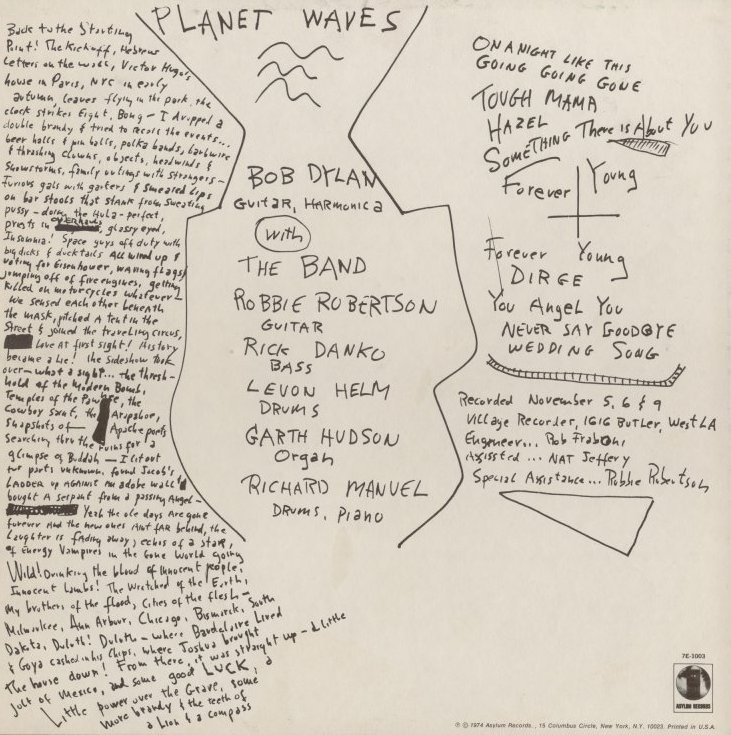 PLANET WAVES
Back to the Starting
Point! The Kickoff, Hebrew
Letters on the wall, Victor Hugo's
house in Paris, NYC in early
autumn, leaves flying in the park, the
clock strikes Eight, Bong - I dropped a
double brandy & tried to recall the events...
beer halls & pin balls, polka bands, barbwire
& thrashing clowns, objects, headwinds &
Snowstorms, family outings with strangers -
Furious gals with garters & smeared Lips
on bar stools that stank from sweating
pussy - doing the Hula - perfect,
priests in overhauls, glassy eyed,
Insomnia! Space guys off duty with
big dicks & ducktails All wired up &
voting for Eisenhower, waving flags &
jumping off of fire engines, getting
killed on motorcycles whatever -
We sensed each other beneath
the mask, pitched a tent in the
Street & joined the traveling circus,
Love at first sight! History
became a Lie! the sideshow took
over - what a sight... the thresh-
hold of the Modern Bomb,
Temples of the Pawnee, the
Cowboy Saint, the Arapahoe,
Snapshots of - Apache poets
Searching thru the ruins for a
glimpse of Buddah - I lit out
for parts unknown, found Jacob's
LADDER up AGAINST an adobe wall &
bought A serpent from a passing Angel -
Yeah the ole days Are gone
forever And the new ones Aint fAR behind, the
Laughter is fading away, echos of a star,
of Energy Vampires in the Gone World going
Wild! Drinking the blood of innocent people,
Innocent Lambs! The Wretched of the Earth,
My brothers of the flood, Cities of the flesh -
Milwaukee, Ann Arbour, Chicago, Bismarck, South
Dakota, Duluth! Duluth - where Baudelaire Lived
& Goya cashed in his Chips, where Joshua brought
The house down! From there, it was straight up - a little
jolt of Mexico, and some good LUCK, a
Little power over the Grave, some
More brandy & the teeth of
a Lion & a compass
BOB DYLAN
Guitar, HARMONICA
With
THE BAND
ROBBIE ROBERTSON
GUITAR
RICK DANKO
BASS
LEVON HELM
DRUMS
GARTH HUDSON
Organ
RICHARD MANUEL
DRUMS, PIANO
ON A NIGHT LIKE THIS
GOING GOING GONE
TOUGH MAMA
HAZEL
SOMETHING There is About YOU
Forever Young
Forever Young
DIRGE
You Angel You
NEVER SAY GOODBYE
WEDDING SONG
Recorded November 5, 6 & 9
Village Recorder, 1616 BUTLER, West LA
Engineer... Rob Fraboni
Assisted... NAT Jeffery
Special Assistance... Robbie Robertson
7E-1003
ASYLUM RECORDS
℗ © 1974 Asylum Records, 15 Columbus Circle, New York, N.Y. 10023. Printed in U.S.A.